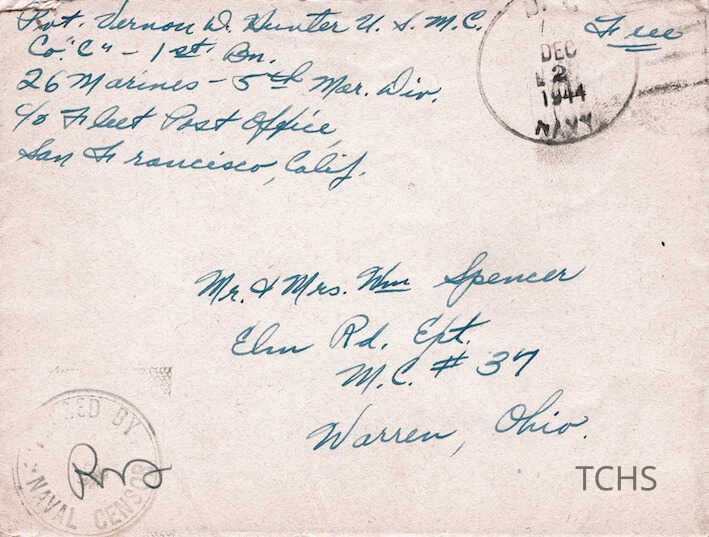 Pvt. Vernon D. Hunter U.S.M.C.
Co. "C" - 1st Bn.
26 Marines - 5th Mar. Div.
c/o Fleet Post Office,
San Francisco, Calif.
Free
DEC
2
1944
NAVY
Mr. & Mrs. Wm Spencer
Elm Rd. Ext.
M.C. # 37
Warren, Ohio.
PASSED BY
NAVAL CENSOR
TCHS